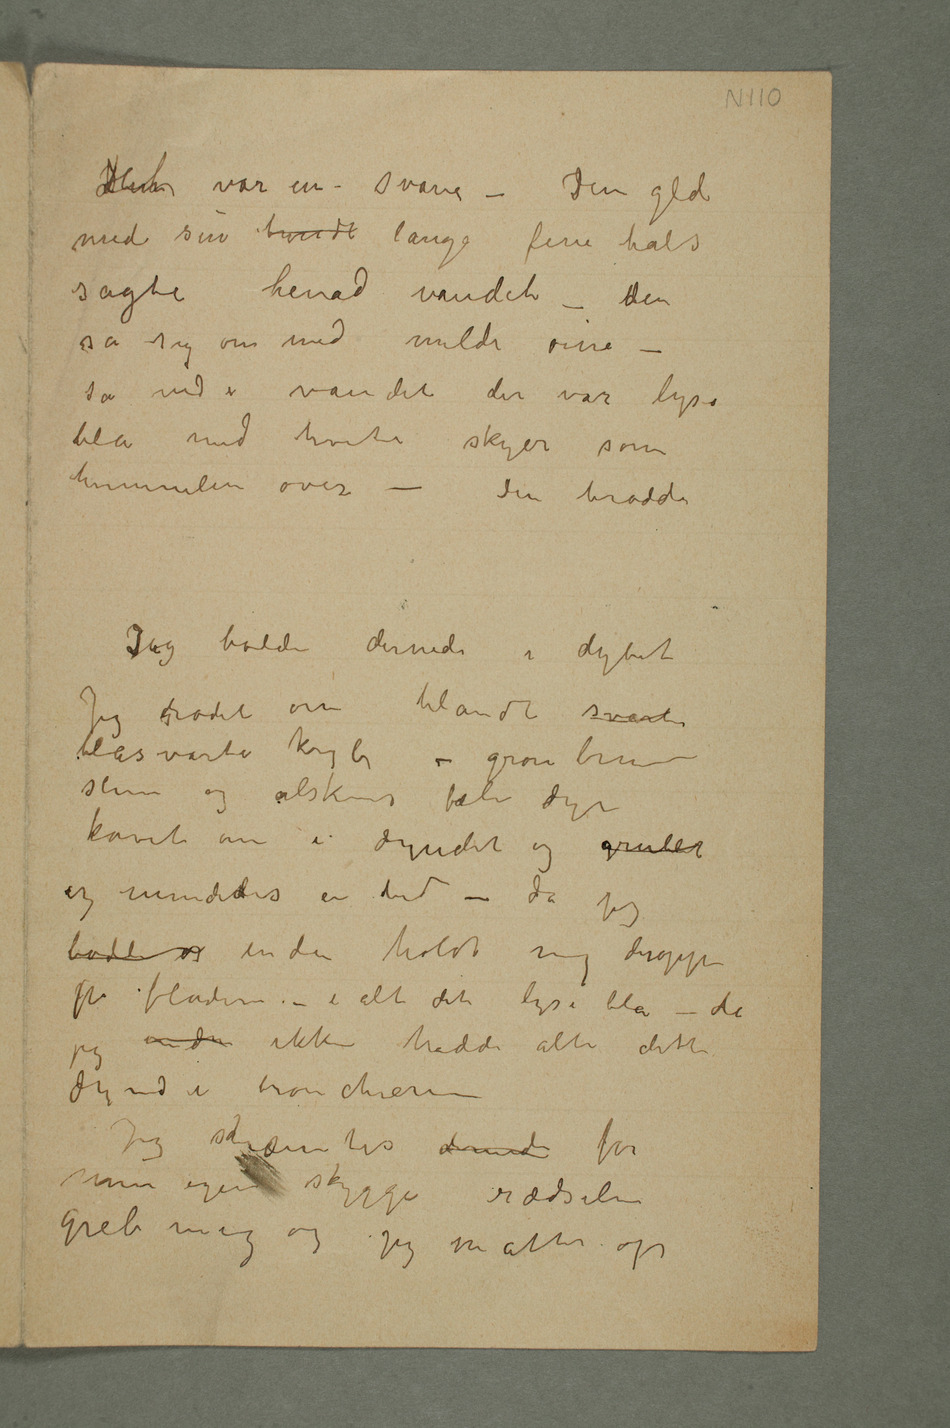 N110
Der var en svane – Den gled
med sin hvide lange fine hals
sagte henad vandet – den
så sig om med milde øine –
så ned i vandet der var lyse
blå med hvite skyer som
himmelen over – Den trodde
Jeg bodde dernede i dybet
Jeg rodet om blandt svarte
blåsvarte kryb – grønbrun
slim og alskens fæle dyr
kavet om i dyndet og
og mindedes en tid – da jeg
bodde og endnu holdt mig deroppe
på fladen – i alt det lyse blå – da
jeg endnu ikke hadde alt dette
dynd i bronchierne
Jeg skræmtes dernede for
min egen skygge rædselen
greb mig og jeg måtte op